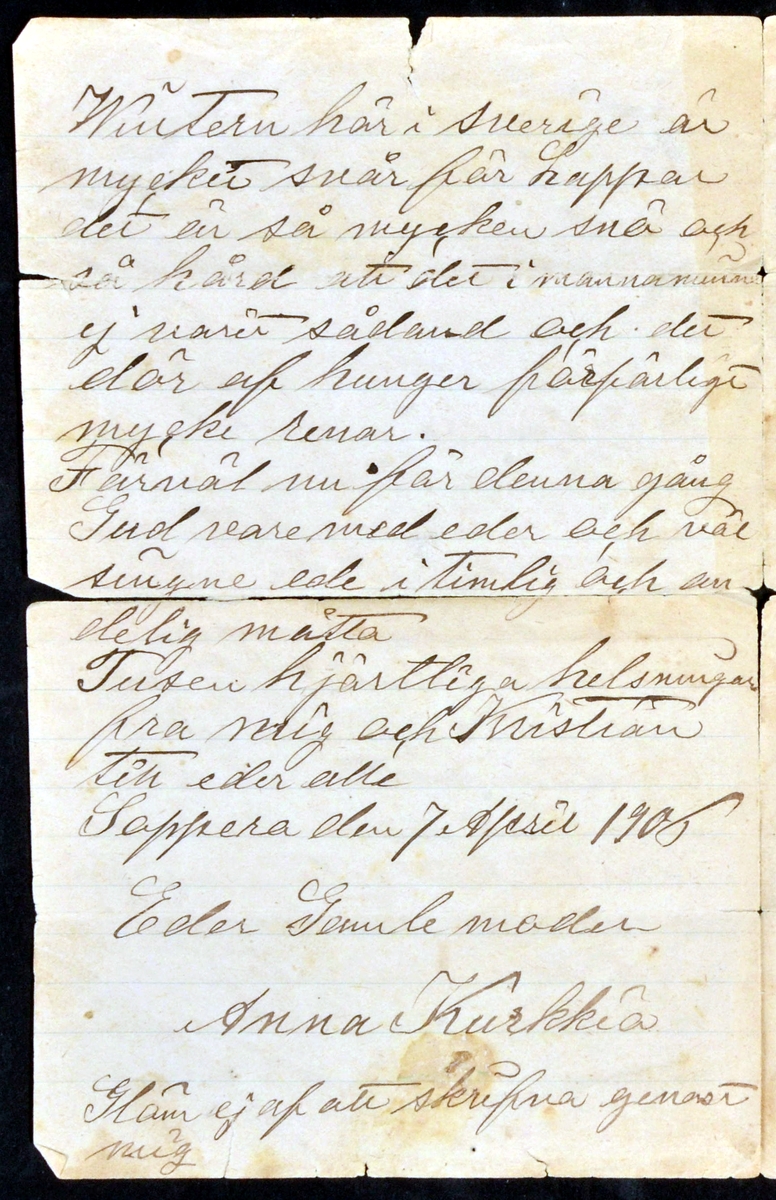 Wintern här i sverige är
mycket svår för Lappar
det är så mycken snö och
så hård att det i mannaminne
ej varit sådand och det
dör af hunger förfärligt
mycke renar.
Färväl nu för denna gång
Gud vare med eder och väl
singne ede i timlig och an-
delig måtta
Tusen hjärtliga helsningar
fra mig och Kristian
till eder alle
Soppera den 7 April
Eder Gamle moder
Anna Kurkkio
Gläm ej af att skrifva genast
mig